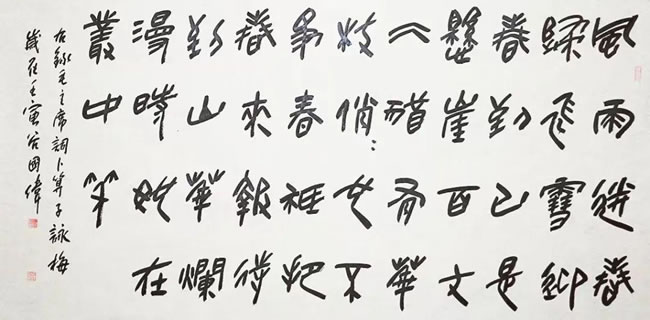 風雨送春
歸飛雪迎
春到已是
懸崖百丈
仌猶有華
枝俏〻也不
爭春祗把
春來報待
到山華爛
漫時她在
叢中笑
右錄毛主席詞卜算子詠梅
歲在壬寅谷國偉